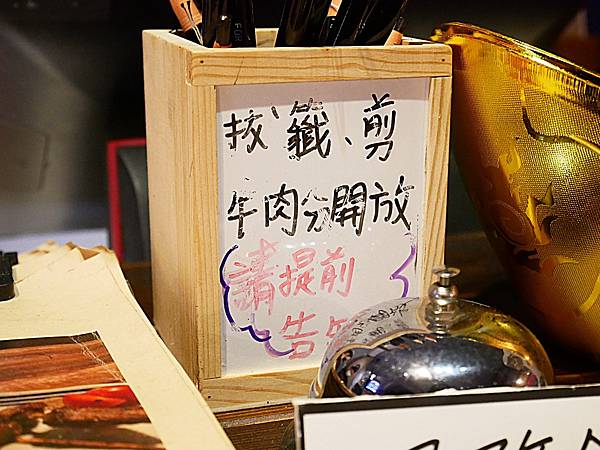 拔、籤、剪
牛肉分開放
請提前
告